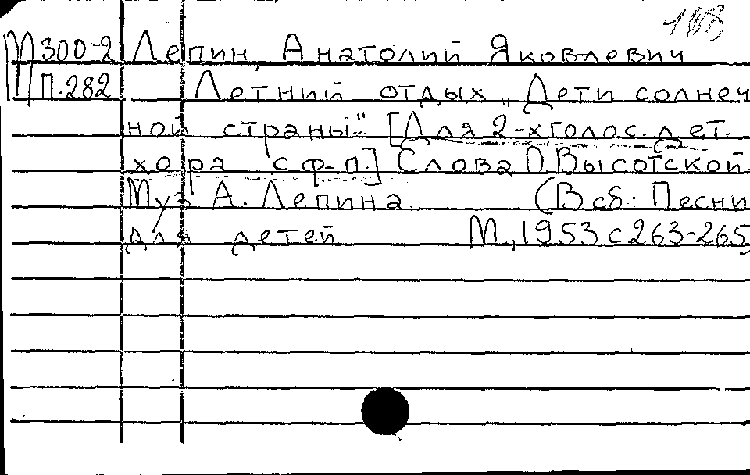 М 300-2 Лепин, Анатолий Яковлевич
П.282 Летний отдых „Дети солнеч
ной страны" [Для 2-хголос. дет.
хора с ф-п.] Слова О. Высотской
Муз А. Лепина (В сб: Песни
для детей М., 1953 с 263-265